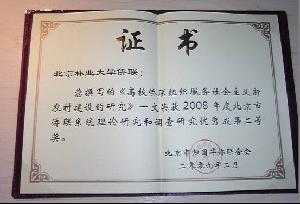 证书
北京林业大学侨联：
您撰写的《高校侨联组织服务社会主义新
农村建设的研究》一文荣获2008年度北京市
侨联系统理论研究和调查研究优秀成果二等
奖。
北京市归国华侨联合会
二零零九年二月